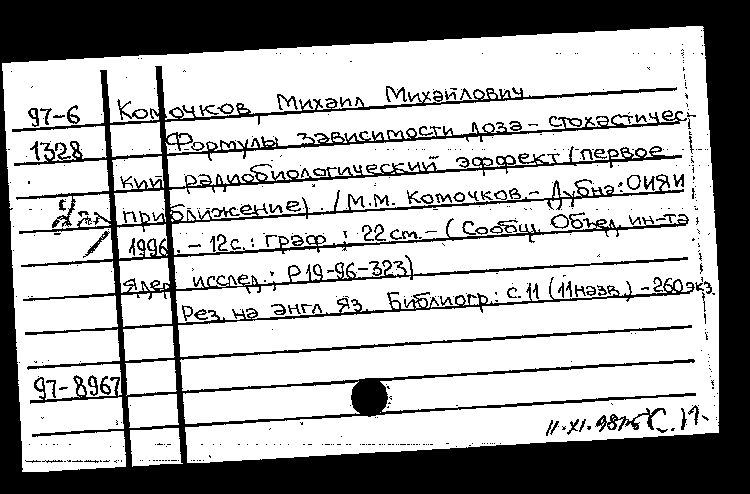 97-6 Комочков, Михаил Михайлович
1328 Формулы зависимости доза - стохастичес-
кий радиобиологический эффект (первое
приближение) . / М.М. Комочков. - Дубна: ОИЯИ
1996. - 12 с. : граф. ; 22 см. - (Сообщ. Объед. ин-та
ядер. исслед. ; Р19-96-323)
Рез. на англ. яз. Библиогр.: с. 11 (11 назв.) - 260 экз.
97-8967
11.XI. С.П.